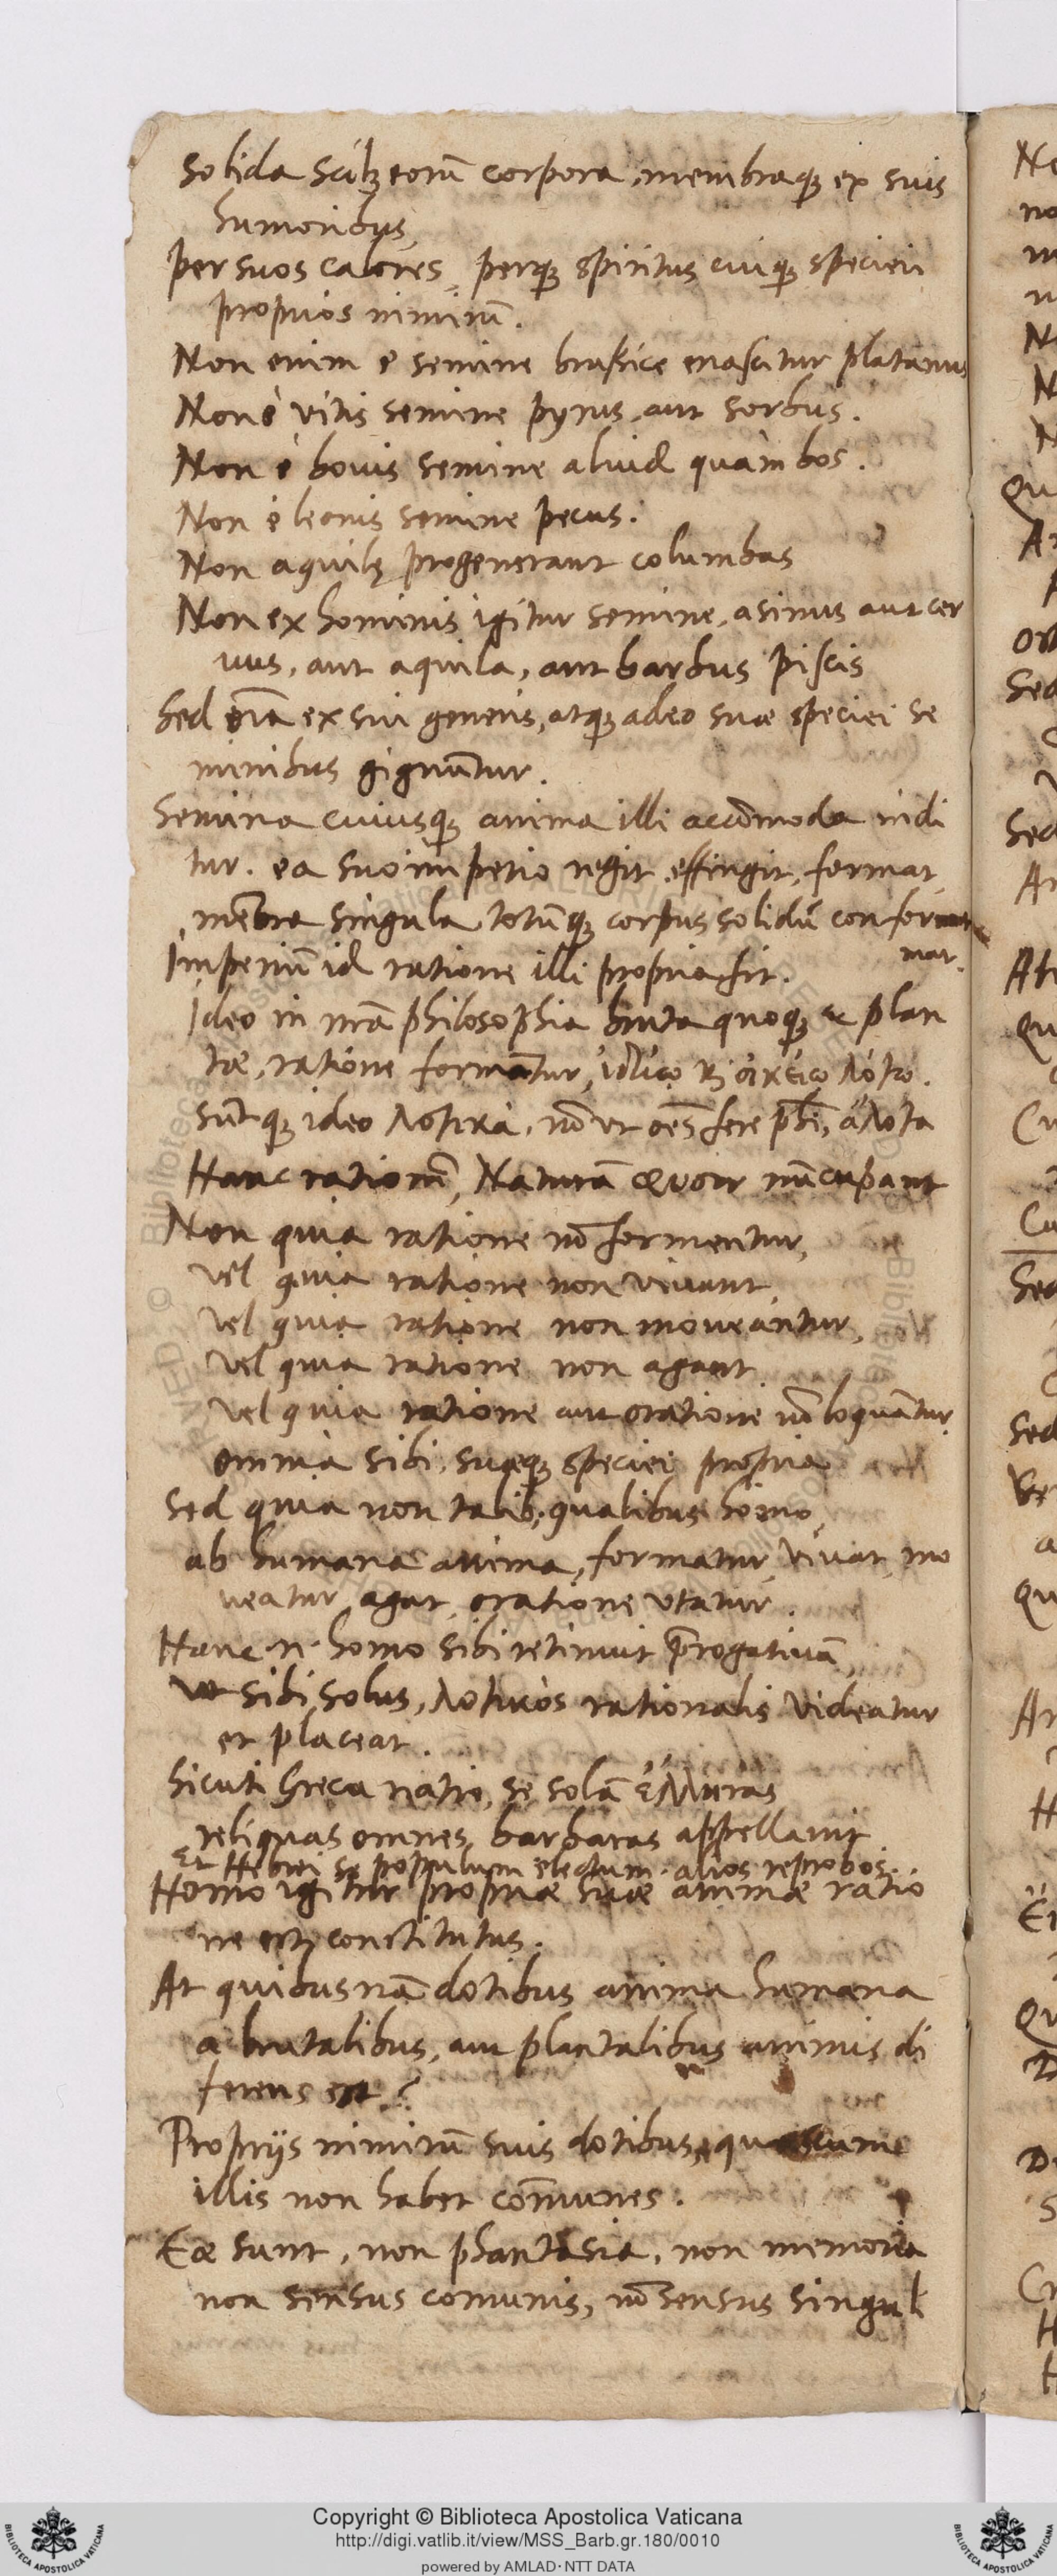 solida scilꝫ eorũ corpora, membraqꝫ ex suis
humoribus,
per suos calores, perqꝫ spiritus cuiqꝫ speciei
proprios nimirũ.
Non enim e semine brassice enascitur platanus
Non è vitis semine pyrus, aut sorbus.
Non è bouis semine aliud quàm bos.
Non è leonis semine pecus.
Non aquilę progenerant columbas
Non ex hominis igitur semine, asinus aut cer
uus, aut aquila, aut barbus piscis
Sed oĩa ex sui generis, atqꝫ adeo suæ speciei se
minibus gignũtur.
Semina cuiusqꝫ anima illi accõmoda indi
tur. ea suo imperio regit, effingit, format,
mẽbra singula totũqꝫ corpus solidũ confor
mat.
Imperiũ id ratione illi propria fit.
Ideo in nrã philosophia bruta quoqꝫ & plan
tæ, ratione formãtur, ἰδίῳ καὶ οἰκείῳ λόγῳ.
suntqꝫ ideo λογικὰ, nõ vt oẽs fere phĩ, ἄλογα
Hanc rationẽ, Naturã φύσιν nũcupant
Non quia ratione nõ formentur,
vel quia ratione non viuant,
vel quia ratione non moueantur,
vel quia ratione non agant
vel quia ratione aut oratione nõ loquãtur,
omnia sibi, suæqꝫ speciei propria
Sed quia non talibꝫ, qualibus homo,
ab humana anima, formatur, viuat, mo
ueatur, agat, oratione vtatur.
Hanc .n. homo sibi retinuit p̃rogatiuã,
vt sibi solus, λογικὸς rationalis videatur
et placeat.
Sicuti Greca natio, se solã ἕλληνας
reliquas omnes barbaras appellauit
Et Hebrei se poppulum electum. alios reprobos.
Homo igitur propriæ suæ animæ ratio
ne est constitutus.
At quibusnã dotibus anima humana
a brutalibus, aut plantalibus animis di
ferens est?
Proprijs nimirũ suis dotibus, quas cum
illis non habet cõmunes.
Eæ sunt, non phantasia, non memoria
non sensus comunis, nõ sensus singul
Copyright © Biblioteca Apostolica Vaticana
http://digi.vatlib.it/view/MSS_Barb.gr.180/0010
powered by AMLAD·NTT DATA